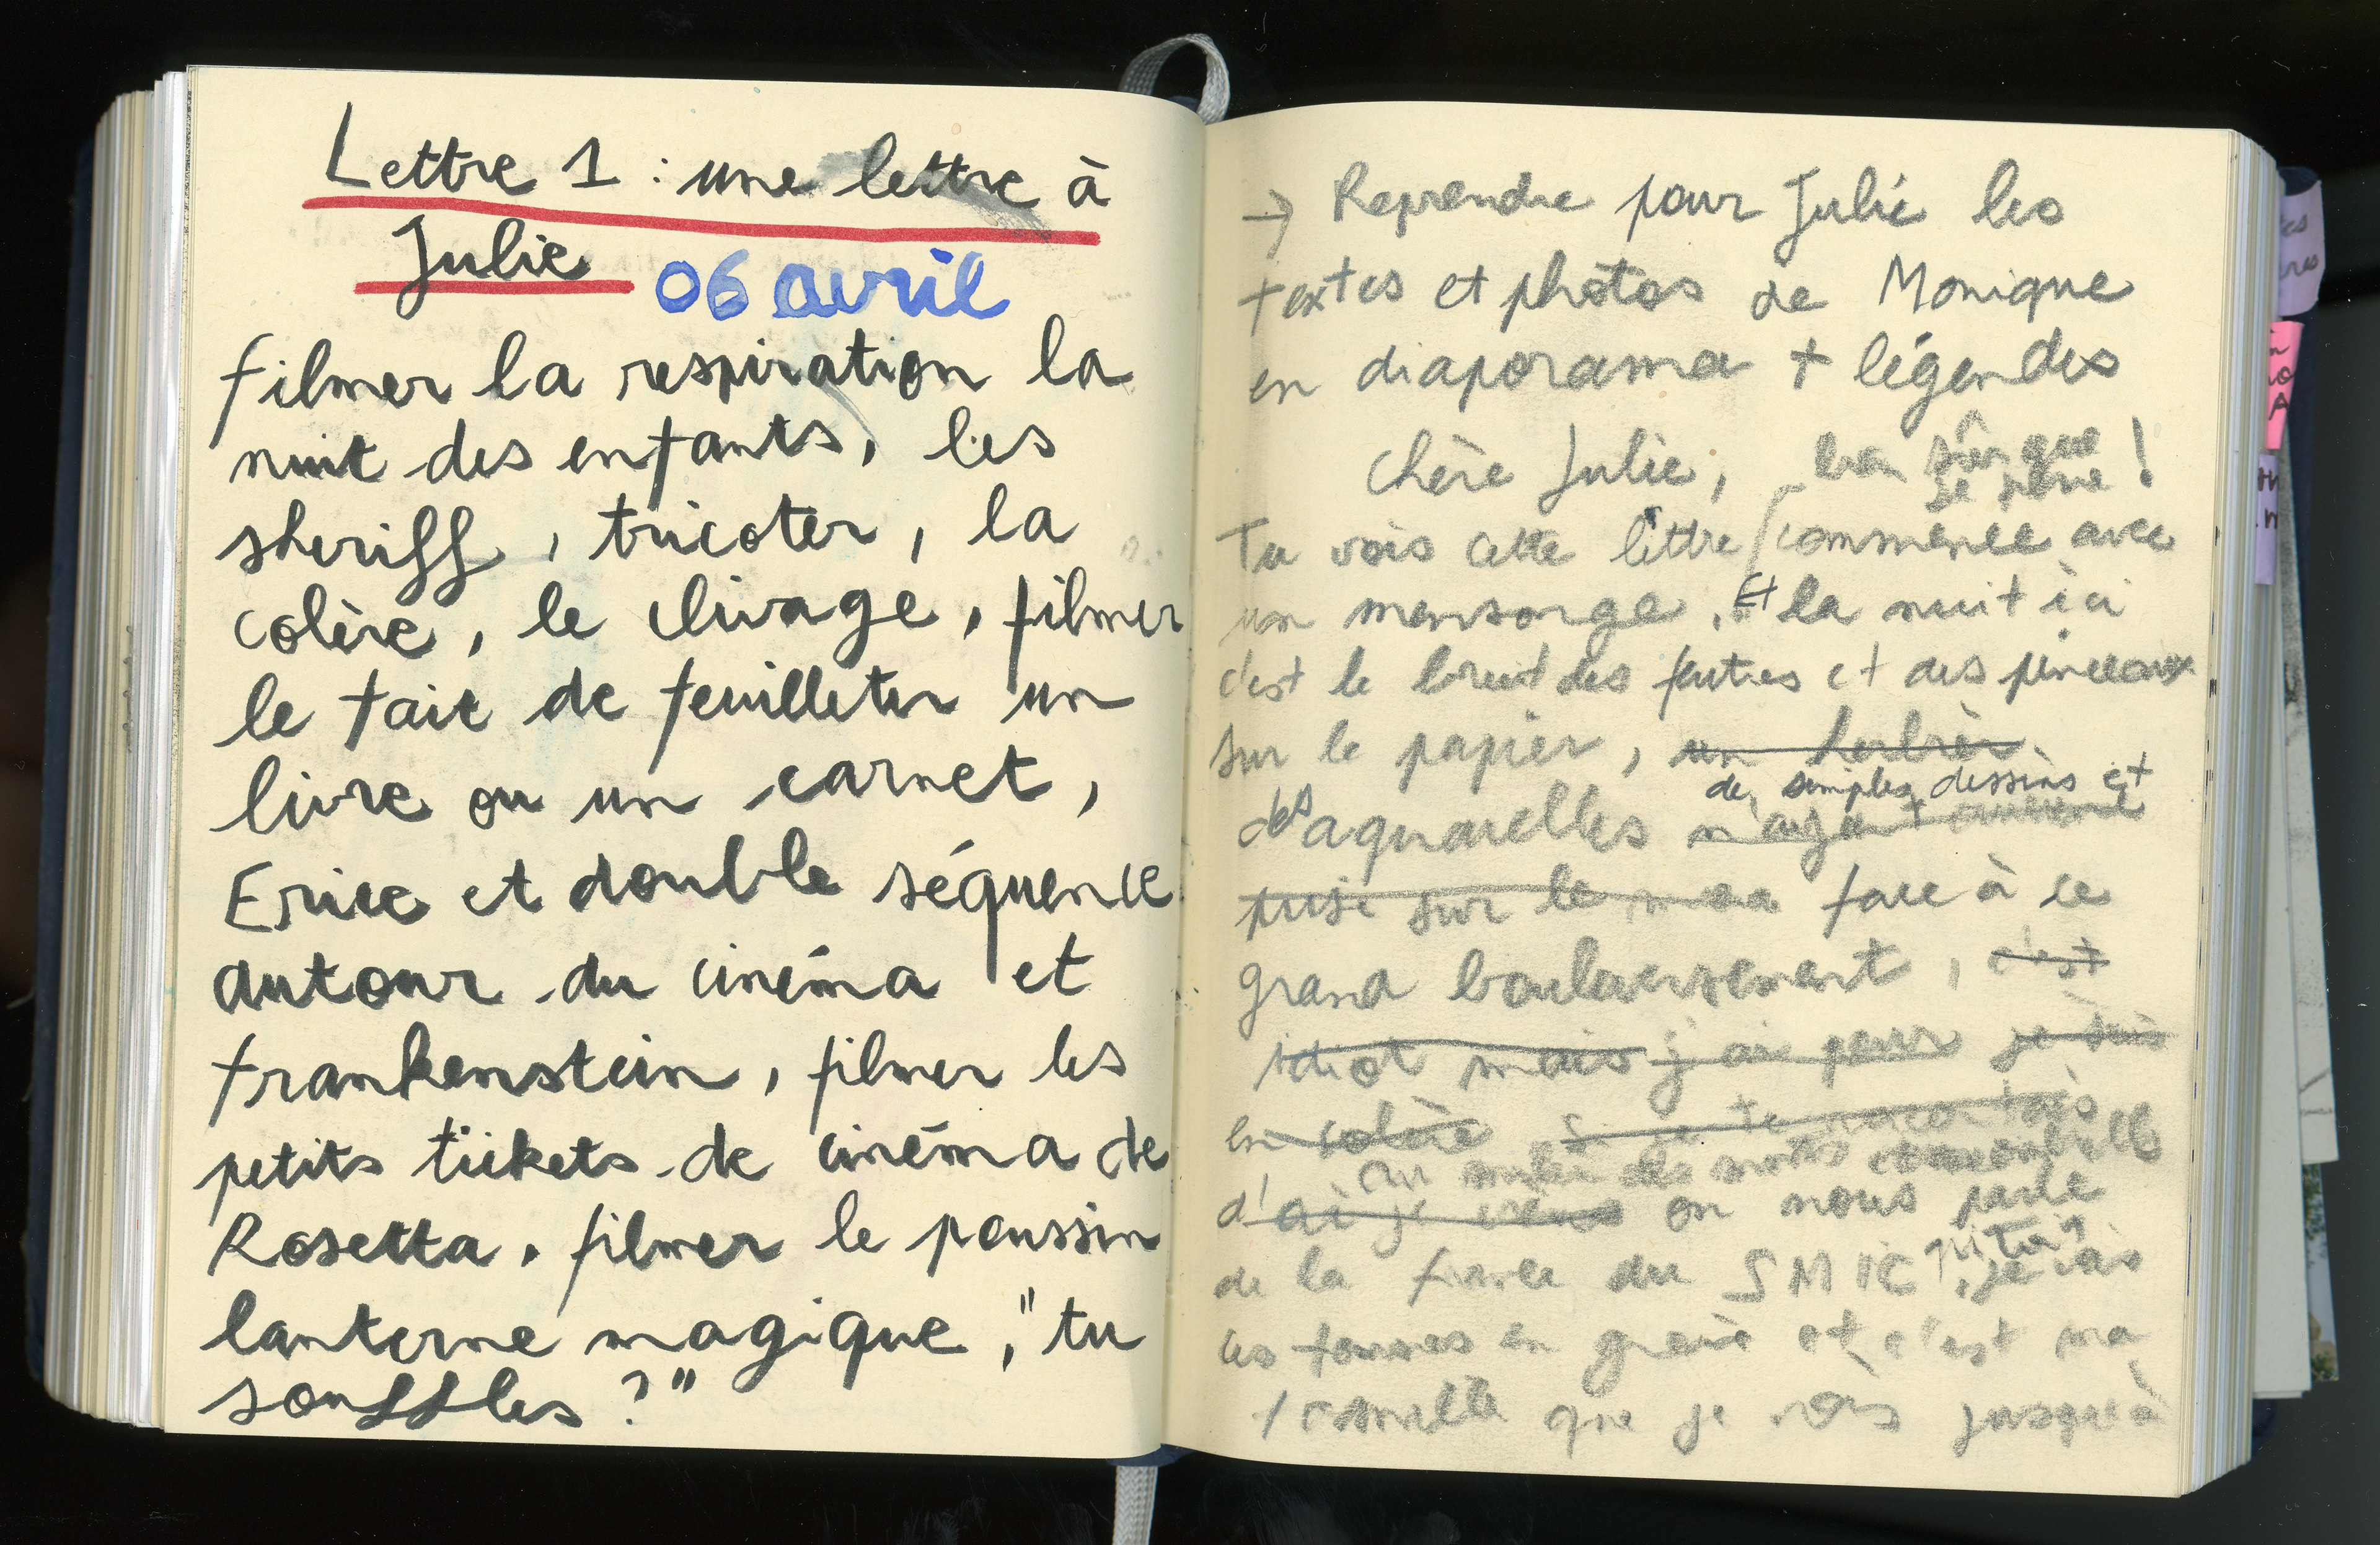 Lettre 1 : une lettre à
Julie 06 avril
filmer la respiration la
nuit des enfants, les
sheriff, tricoter, la
colère, le clivage, filmer
le fait de feuilleter un
livre ou un carnet,
Erice et double séquence
autour du cinéma et
frankenstein, filmer les
petits tickets de cinéma de
Rosetta, filmer le poussin
lanterne magique, "tu
souffles ?"
→ Reprendre pour Julie les
textes et photos de Monique
en diaporama + légendes
Chère Julie, bien sûr que
je !
Tu vois cette lettre commence avec
un mensonge. Et la nuit ici
c'est le bruit des feutres et des pinceaux
sur le papier, un herbier
de simples dessins et
des aquarelles n'ayant aucune
prise sur le face à ce
grand bouleversement, c'est
idiot mais j'ai peur je suis
en colère Si je te racontais
au milieu des mots
d' on nous parle
de la du SMIC
et c'est ma
que je vois jusqu'à